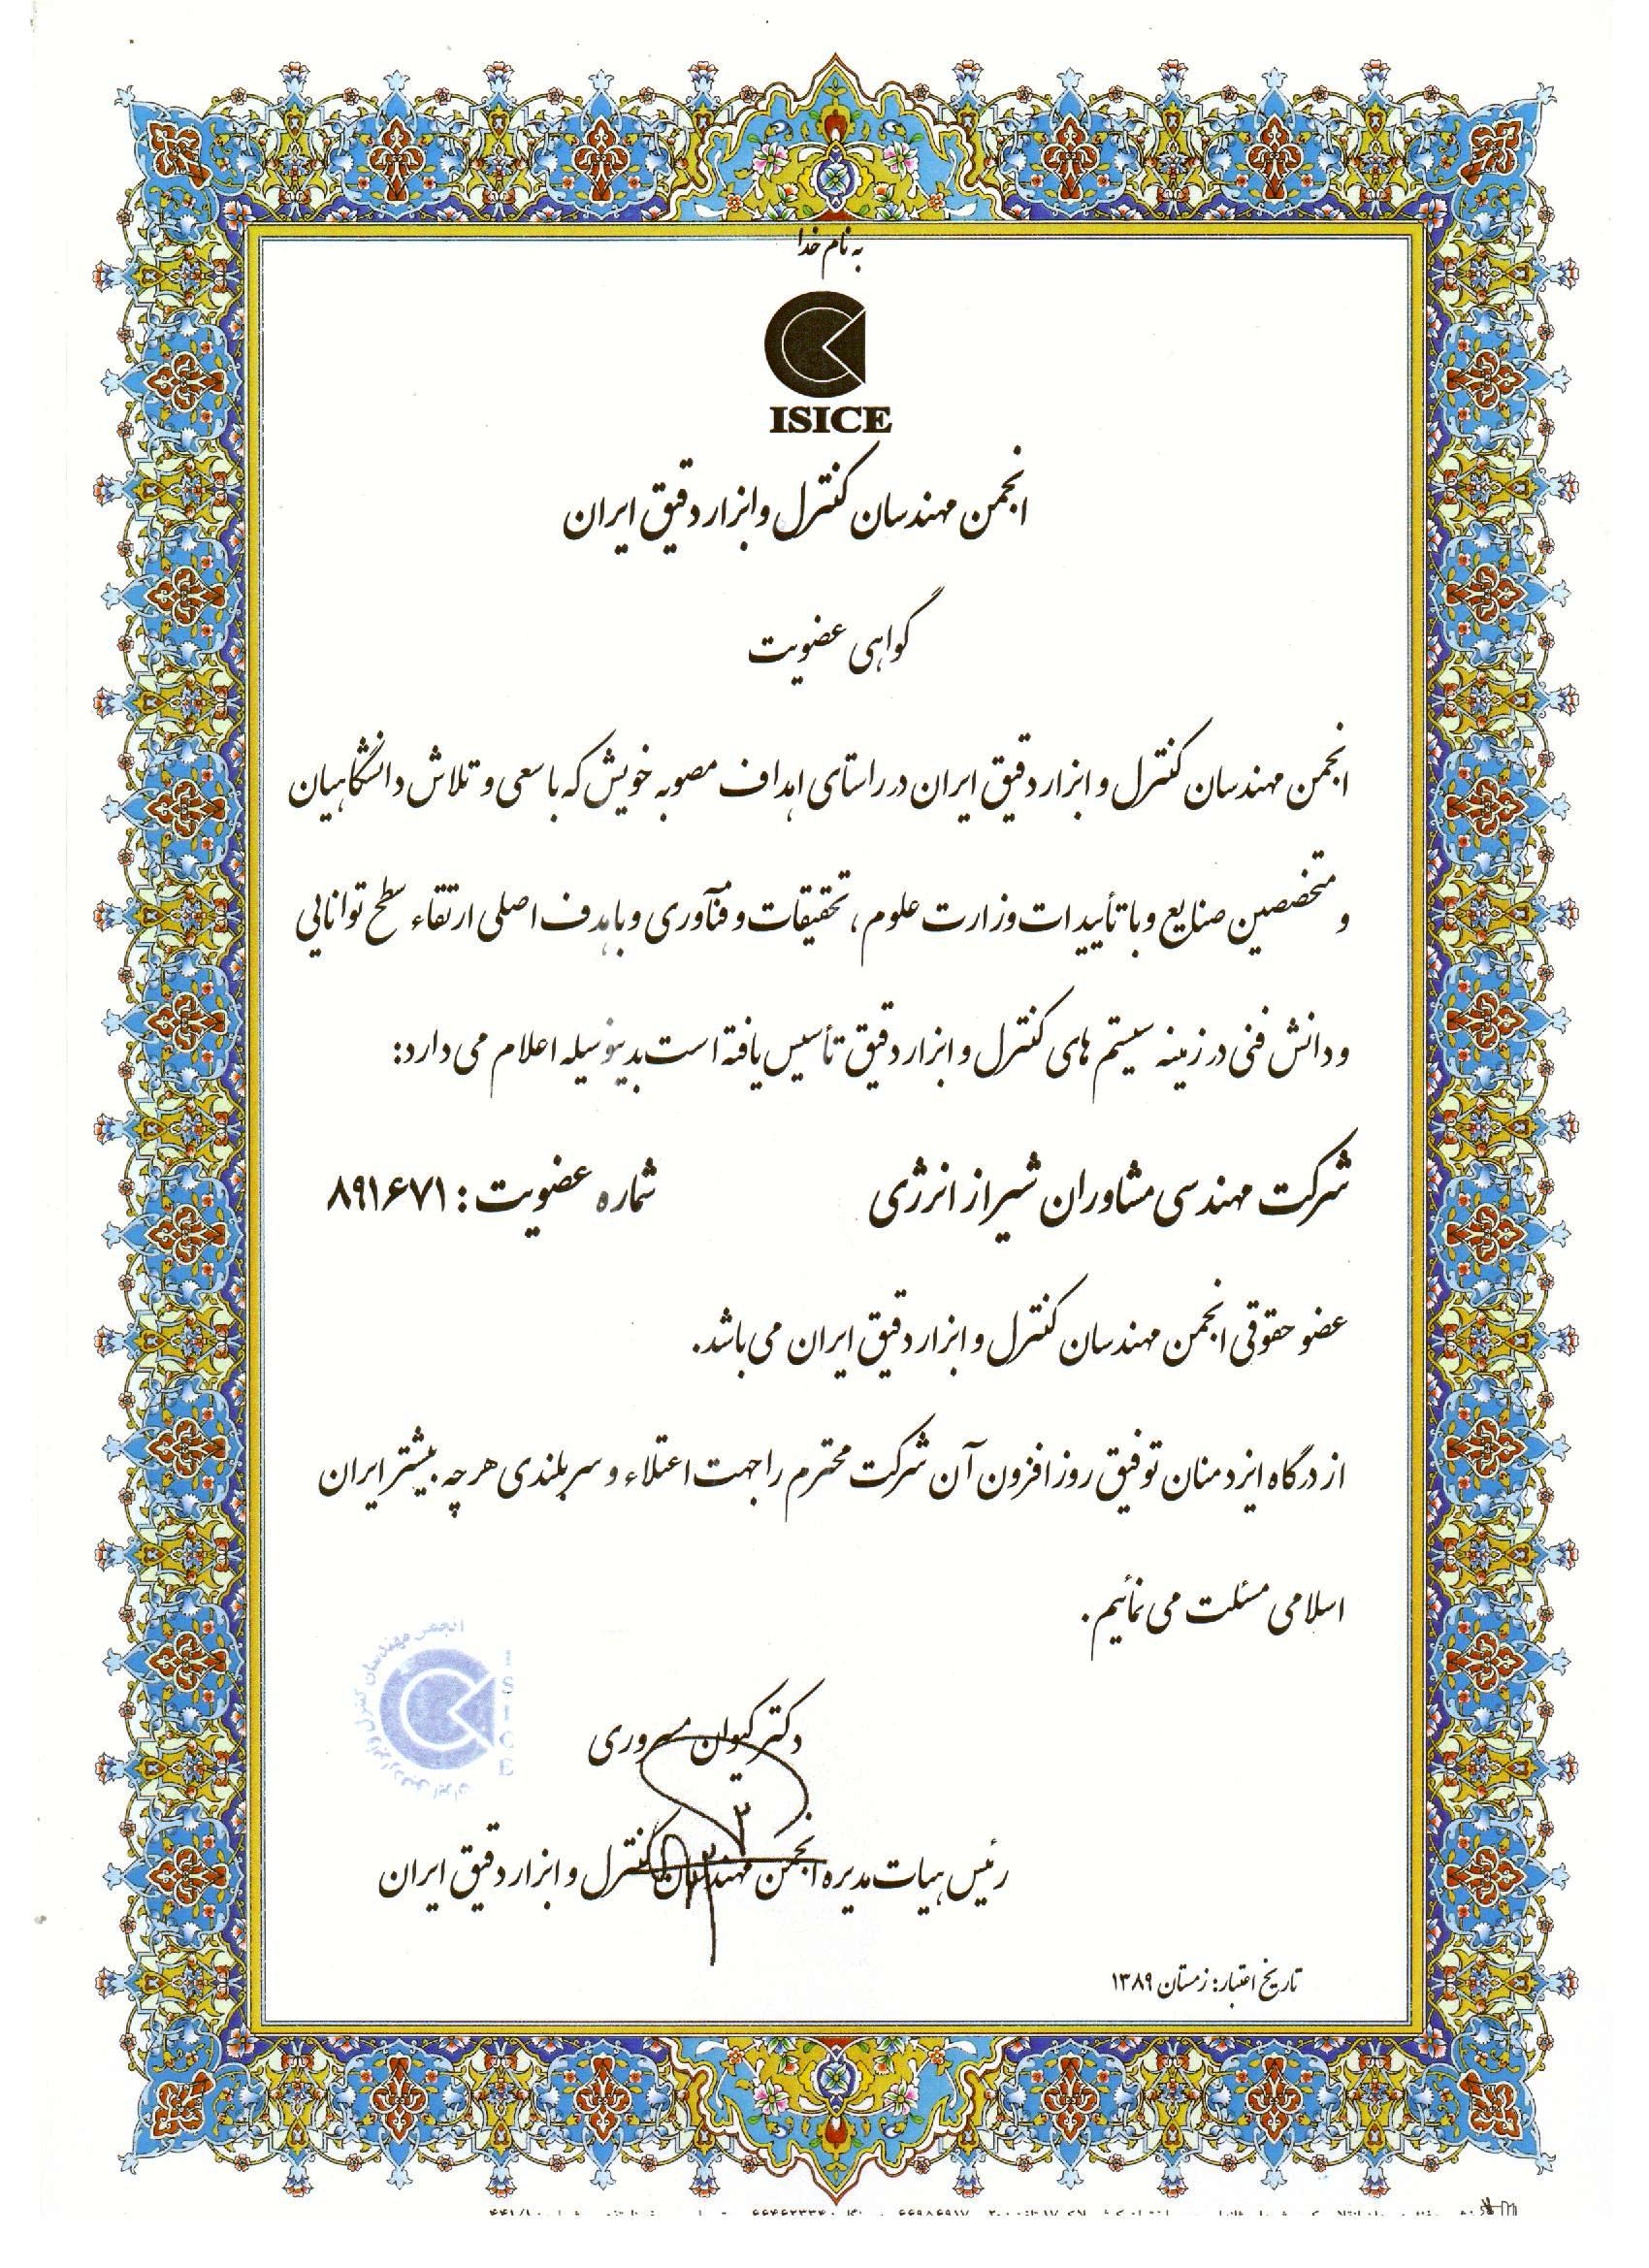 به نام خدا
ISICE
انجمن مهندسان کنترل و ابزار دقیق ایران
گواهی عضویت
انجمن مهندسان کنترل و ابزار دقیق ایران در راستای اهداف مصوبه خویش که با سعی و تلاش دانشگاهیان
و متخصصین صنایع و با تأییدات وزارت علوم، تحقیقات و فنّآوری و با هدف اصلی ارتقاء سطح توانایی
و دانش فنی در زمینه سیستم های کنترل و ابزار دقیق تأسیس یافته است بدینوسیله اعلام می دارد:
شرکت مهندسی مشاوران شیراز انرژی شماره عضویت: ۸۹۱۶۷۱
عضو حقوقی انجمن مهندسان کنترل و ابزار دقیق ایران می باشد.
از درگاه ایزد منان توفیق روزافزون آن شرکت محترم را جهت اعتلاء و سربلندی هرچه بیشتر ایران
اسلامی مسئلت می نمائیم.
انجمن مهندسان کنترل و ابزار دقیق ایران
ISICE
دکتر کیوان مسروری
رئیس هیات مدیره انجمن مهندسان کنترل و ابزار دقیق ایران
تاریخ اعتبار: زمستان ۱۳۸۹